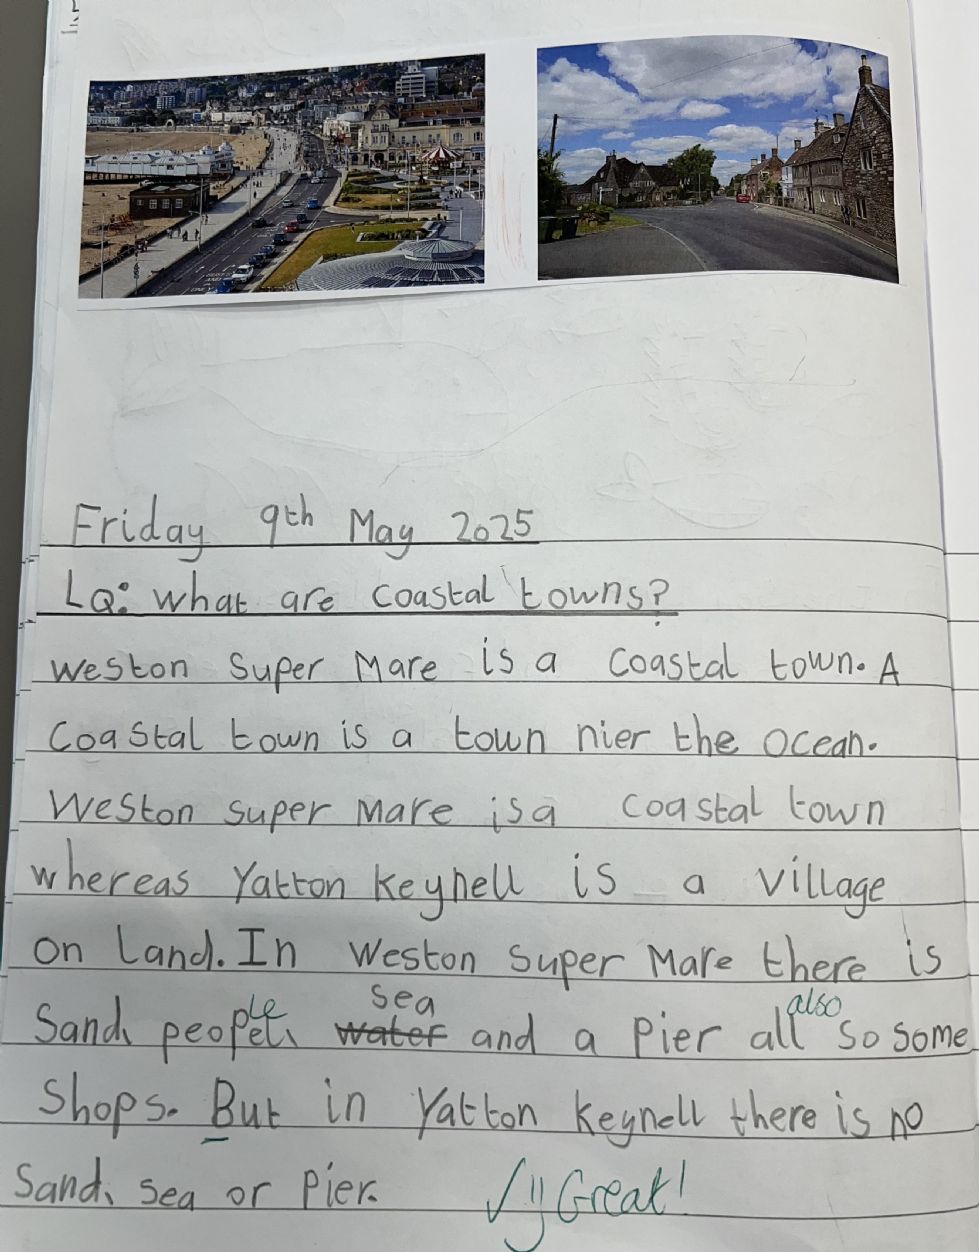 Friday 9th May 2025
LQ: what are coastal towns?
Weston Super Mare is a coastal town. A
coastal town is a town nier the ocean.
Weston super Mare is a coastal town
whereas Yatton keynell is a village
on land. In Weston Super Mare there is
le sea also
Sand, peopel, water and a Pier all so some
Shops. But in Yatton keynell there is no
Sand, sea or Pier. Great!